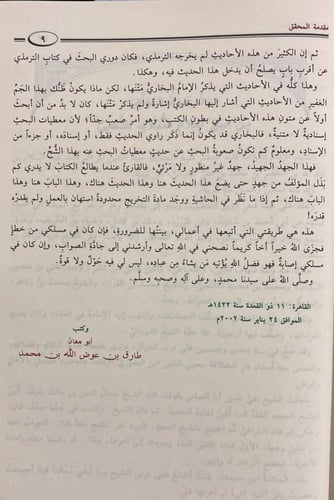 مقدمة المحقق
٩
ثم إن الكثيرَ من هذه الأحاديثِ لم يخرجه الترمذي، فكان دوري البحثَ في كتابِ الترمذي
عن أقربِ بابٍ يصلحُ أن يدخل هذا الحديث فيه، وهكذا.
وهذا كلُّه في الأحاديثِ التي يذكرُ الإمامُ البخاريُّ مَتْنَها، لكن ماذا يكونُ ظَنُّك بهذا الجَمِّ
الغفيرِ من الأحاديثِ التي أشار إليها البخاريُّ إشارةً ولم يذكرْ مَتْنَها، كان لا بدَّ من أن أبحثَ
أولاً عن متونِ هذه الأحاديثِ في بطونِ الكتبِ، وهو أمرٌ صعبٌ جدًّا؛ لأن معطياتِ البحثِ
إسناديةٌ لا متنيةٌ، فالبخاري قد يكونُ إنما ذكر راوي الحديثِ فقط، أو إسنادَه، أو جزءاً من
الإسنادِ، ومعلومٌ كم تكونُ صعوبةُ البحثِ عن حديثٍ معطياتُ البحثِ عنه بهذا الشُّحِّ.
فهذا الجهدُ الجهيدُ، جهدٌ غيرُ منظورٍ ولا مرْئيٍّ، فالقارئُ عندما يطالعُ الكتابَ لا يدري كم
بَذَل المؤلفُ من جهدٍ حتى يضعَ هذا الحديثَ هنا وهذا الحديثَ هناك، وهذا البابَ هنا وهذا
البابَ هناك، ثم إذا ما نَظَر في الحاشيةِ ووجَد مادةَ التخريجِ محدودةً استهان بالعملِ ولم يقدرْه
قدرَه!
هذه هي طريقتي التي أتبعها في أعمالي، بينتُها للضرورةِ، فإن كان في مسلكي من خطإٍ
فجزَى اللَّهُ خيراً أخاً كريماً نصحني في اللهِ تعالى وأرشدني إلى جادَّةِ الصوابِ، وإن كان في
مسلكي إصابةٌ فهو فضلُ اللهِ يُؤتيه مَن يشاءُ مِن عبادِه، ليس لي فيه حَوْلٌ ولا قوةٌ.
وصلَّى اللَّهُ على سيدنا محمدٍ، وعلى آلِه وصحبِه وسلَّم.
القاهرة: ١١ ذو القعدة سنة ١٤٢٢هـ
الموافق ٢٤ يناير سنة ٢٠٠٢م
وكتب
أبو معاذ
طارق بن عوض اللَّه بن محمد